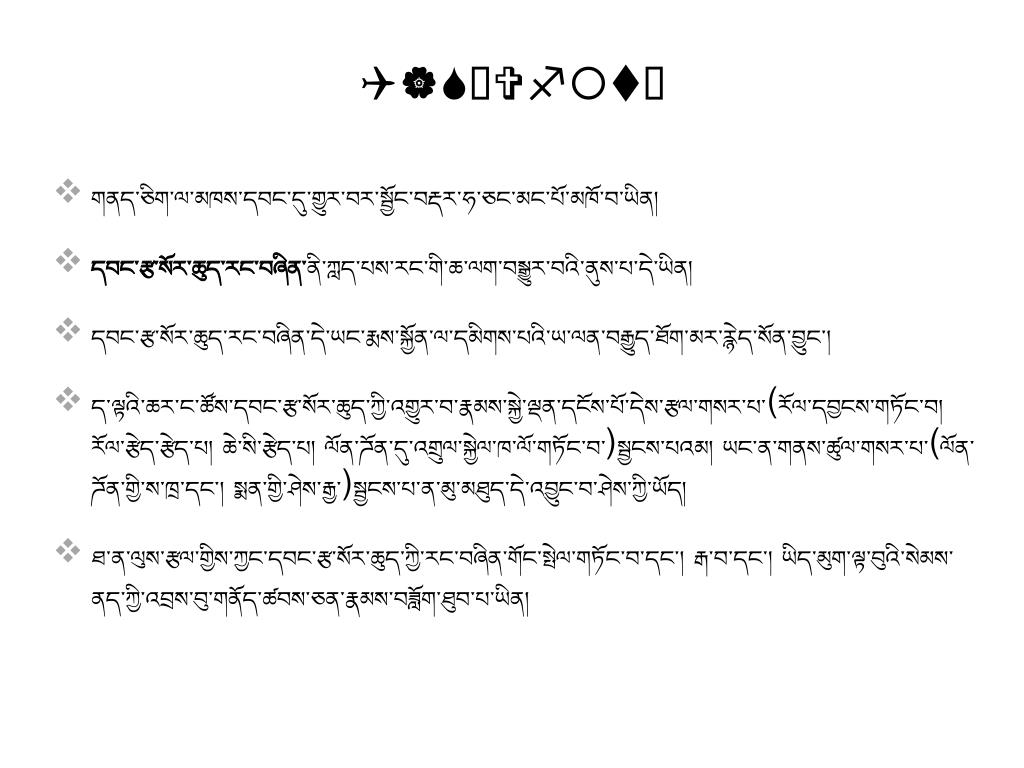 གནད་ཅིག་ལ་མཁས་དབང་དུ་གྱུར་བར་སྦྱོང་བརྡར་ཧ་ཅང་མང་པོ་མཁོ་བ་ཡིན།
དབང་རྩ་སོར་ཆུད་རང་བཞིན་ནི་ཀླད་པས་རང་གི་ཆ་ལག་བསྒྱུར་བའི་ནུས་པ་དེ་ཡིན།
དབང་རྩ་སོར་ཆུད་རང་བཞིན་དེ་ཡང་རྨས་སྐྱོན་ལ་དམིགས་པའི་ཡ་ལན་བརྒྱུད་ཐོག་མར་རྙེད་སོན་བྱུང་།
ད་ལྟའི་ཆར་ང་ཚོས་དབང་རྩ་སོར་ཆུད་ཀྱི་འགྱུར་བ་རྣམས་སྐྱེ་ལྡན་དངོས་པོ་དེས་རྩལ་གསར་པ་(རོལ་དབྱངས་གཏོང་བ།
རོལ་རྩེད་རྩེད་པ། ཆེ་སི་རྩེད་པ། ལོན་ཌོན་དུ་འགྲུལ་སྐྱེལ་ཁ་ལོ་གཏོང་བ་)སྦྱངས་པའམ། ཡང་ན་གནས་ཚུལ་གསར་པ་(ལོན་
ཌོན་གྱི་ས་ཁྲ་དང་། སྨན་གྱི་ཤེས་རྒྱ་)སྦྱངས་པ་ན་མུ་མཐུད་དེ་འབྱུང་བ་ཤེས་ཀྱི་ཡོད།
ཐ་ན་ལུས་རྩལ་གྱིས་ཀྱང་དབང་རྩ་སོར་ཆུད་ཀྱི་རང་བཞིན་གོང་སྤེལ་གཏོང་བ་དང་། རྒ་བ་དང་། ཡིད་མུག་ལྟ་བུའི་སེམས་
ནད་ཀྱི་འབྲས་བུ་གནོད་ཚབས་ཅན་རྣམས་བཟློག་ཐུབ་པ་ཡིན།